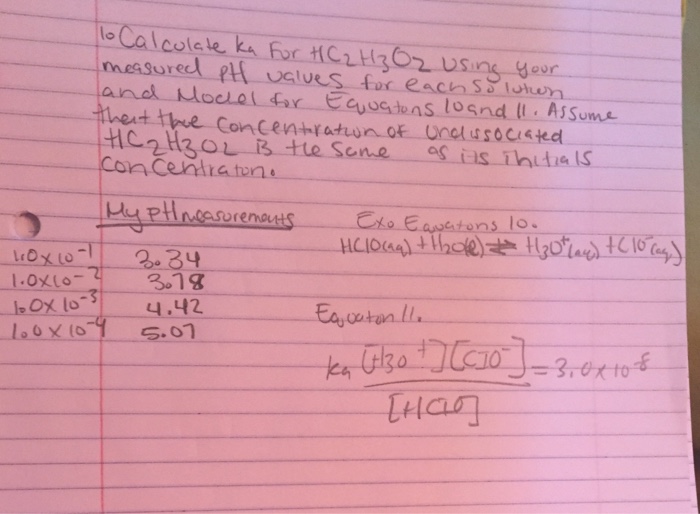 10 Calculate ka For HC2H3O2 Using your
measured pH values for each solution
and Model for Equations 10 and 11. Assume
that the concentration of Undissociated
HC2H3O2 is the same as its initials
concentration.
My pH measurements
1.0x10-1 3.34
1.0x10-2 3.78
1.0x10-3 4.42
1.0x10-4 5.07
Exo Equations 10.
HClO(aq) + H2O(l) ⇌ H3O+(aq) + ClO-(aq)
Equation 11.
ka [H3O+][ClO-] = 3.0x10-8
[HClO]